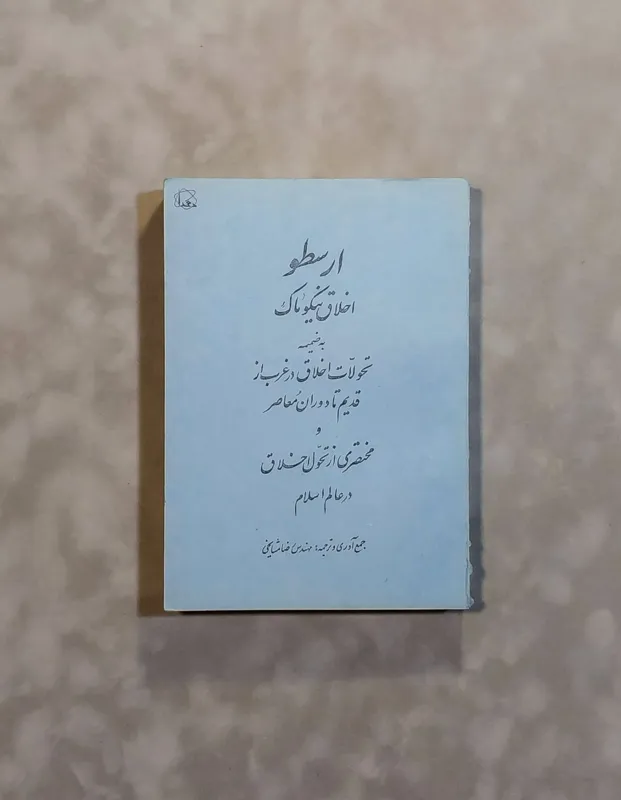 ارسطو
اخلاق نیکوماک
به ضمیمه
تحولّات اخلاق در غرب از
قدیم تا دوران مُعاصر
و
مختصری از تحوّل اخلاق
در عالم اسلام
جمع آوری و ترجمه: مهندس رضا مشایخی